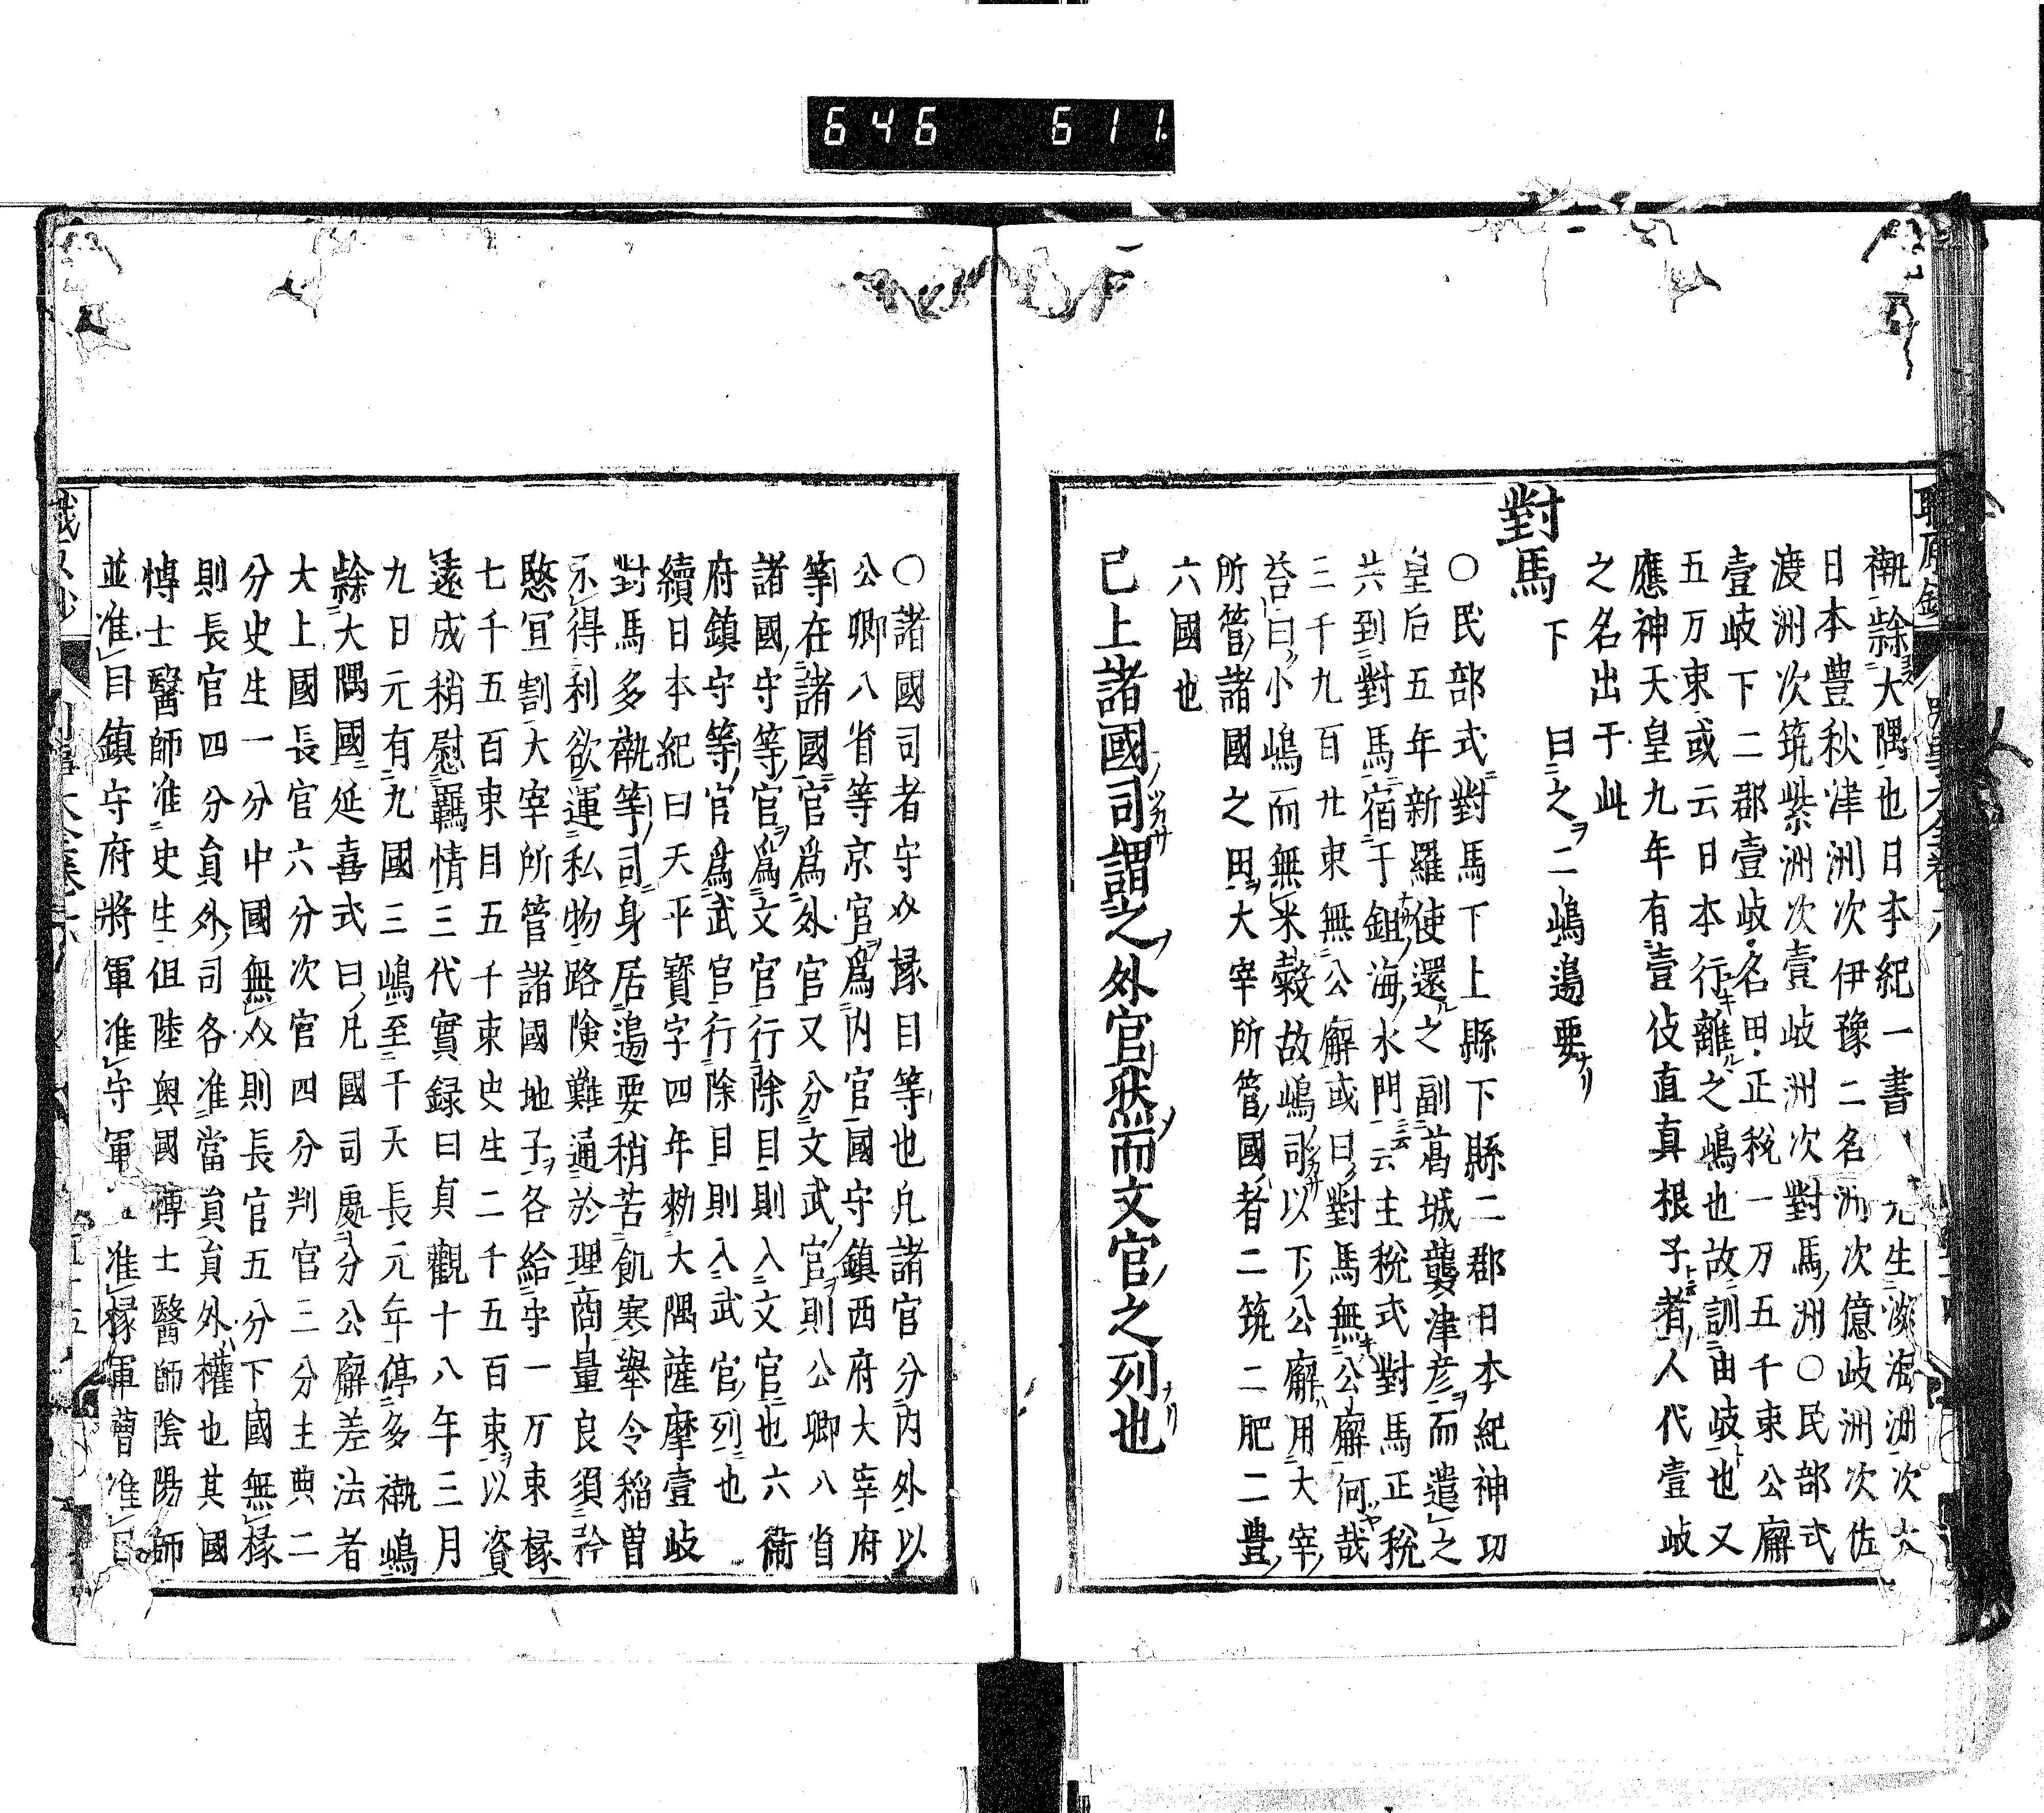 646 611
覊隸大隅也日本紀一書 先生淡洲次大
日本豊秋津洲次伊豫二名洲次億岐洲次佐
渡洲次筑紫洲次壹岐洲次對馬洲〇民部式
壹岐下二郡壹岐名田正税一万五千束公廨
五万束或云日本行離之嶋也故訓由岐也又
應神天皇九年有壹伎直真根子者人代壹岐
之名出于此
對馬下 曰之二嶋邉要
〇民部式對馬下上縣下縣二郡日本紀神功
皇后五年新羅使還之副葛城襲津彦而遣之
共到對馬宿于鉏海水門云主税式對馬正税
三千九百廿束無公廨或曰對馬無公廨何哉
荅曰小嶋而無米穀故嶋司以下公廨用大宰
所管諸國之田大宰所管國者二筑二肥二豊
六國也
已上諸國司謂之外官然而文官之列也
〇諸國司者守介掾目等也凡諸官分内外以
公卿八省等京官爲内官國守鎮西府大宰府
等在諸國官爲外官又分文武官則公卿八省
諸國守等官爲文官行除目則入文官也六衛
府鎮守等官爲武官行除目則入武官列也
續日本紀曰天平寳字四年勑大隅薩摩壹岐
對馬多褹等司身居邉要稍苦飢寒舉令稲曽
不得利欲運私物路険難通於理商量良須矜
愍宜割大宰所管諸國地子各給守一万束掾
七千五百束目五千束史生二千五百束以資
遠成稍慰羈情三代實録曰貞觀十八年三月
九日元有九國三嶋至于天長元年停多褹嶋
隸大隅國延喜式曰凡國司處分公廨差法者
大上國長官六分次官四分判官三分主典二
分史生一分中國無介則長官五分下國無掾
則長官四分貟外司各准當貟貟外權也其國
博士醫師准史生但陸奥國博士醫師陰陽師
並准目鎮守府將軍准守軍 准掾軍曹准目